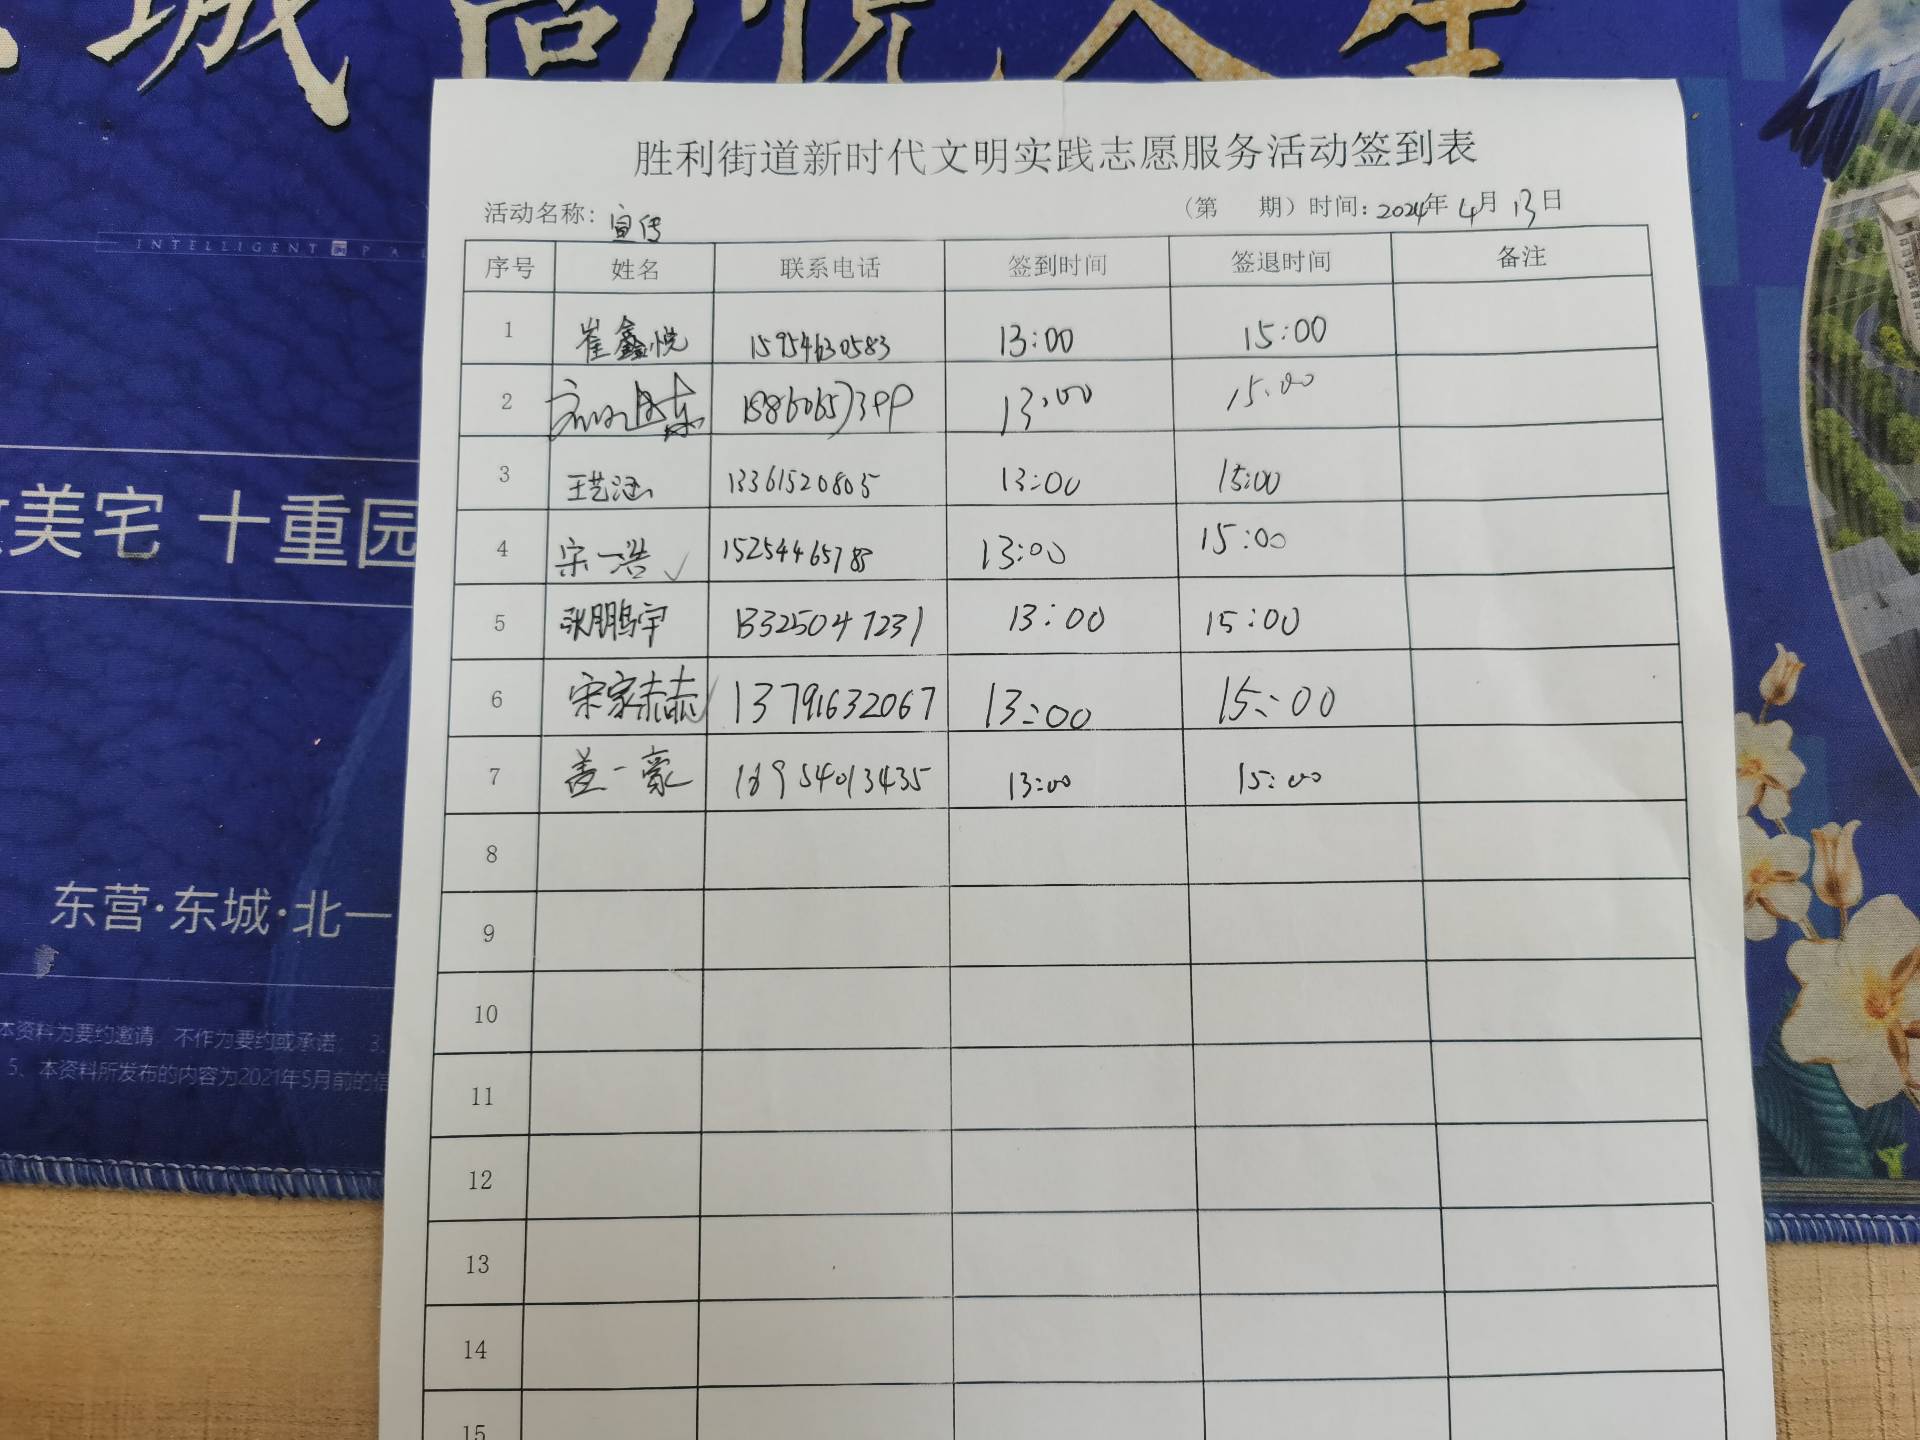 城 尚 悦 人 生
INTELLIGENT PAL
美宅 十重园
东营·东城·北一
本资料为要约邀请，不作为要约或承诺； 3、
5、本资料所发布的内容为2021年5月前的信
胜利街道新时代文明实践志愿服务活动签到表
活动名称：宣传 （第 期）时间：2024年 4月 13日
序号 姓名 联系电话 签到时间 签退时间 备注
1 崔鑫悦 15954630583 13:00 15:00
2 13:00 15:00
3 王艺涵 13361520805 13:00 15:00
4 宋一浩 ✓ 15254465788 13:00 15:00
5 张鹏宇 13325047231 13:00 15:00
6 宋家赫 ✓ 13791632067 13:00 15:00
7 盖一豪 18954013435 13:00 15:00
8
9
10
11
12
13
14
15